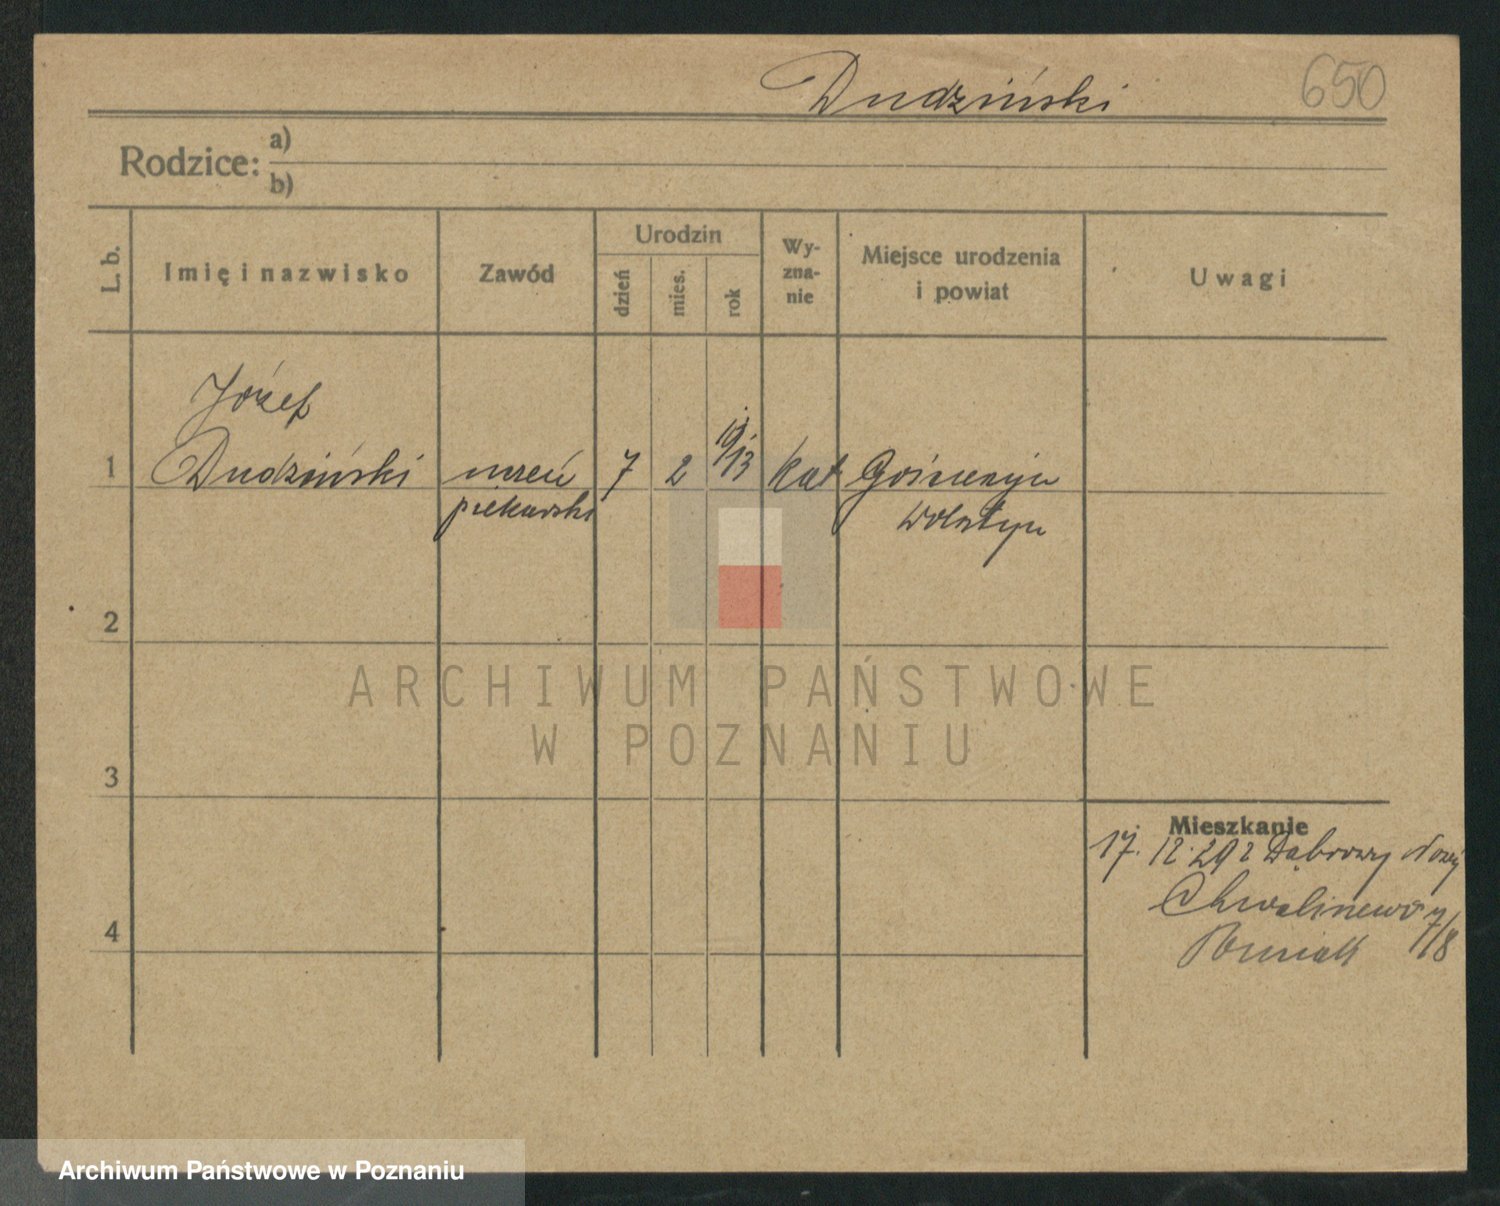 Dudziński
650
Rodzice:
a)
b)
L. b.
Imię i nazwisko
Zawód
Urodzin
dzień
mies.
rok
Wy-
zna-
nie
Miejsce urodzenia
i powiat
Uwagi
Józef
1 Dudziński uczeń 7 2 1913 kat
piekarski Wolsztyn
2
ARCHIWUM PAŃSTWOWE
W POZNANIU
3
4
Mieszkanie
17. 12. 29 z Dąbrowy Nowej
7/8
Archiwum Państwowe w Poznaniu